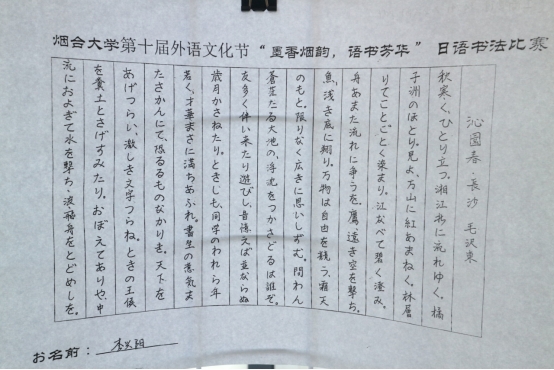 烟台大学第十届外语文化节“墨香烟韵，语书芳华”日语书法比赛
沁園春・長沙 毛沢東
秋寒く、ひとり立つ。湘江北に流れゆく、橘
子洲のほとり。見よ、万山に紅あまねく、林層
りてことごとく染まり。江なべて碧く澄み、
舟あまた流れに争うを。鷹、遠き空を撃ち、
魚、浅き底に翔り。万物は自由を競う、霜天
のもと。限りなく広きに思いしずむ。問わん
蒼茫たる大地の、浮沈をつかさどるは誰ぞ。
友多く伴い来たり遊びし、昔憶えば並ならぬ
歳月かさねたり。ときしも、同学のわれら年
若く、才華まさに満ちあふれ。書生の意気ま
たさかんにて、恐るるものなかりき。天下を
あげつらい、激しき文字つらね。ときの王侯
を糞土とさげすみたり。おぼえてありや、中
流におよぎて水を撃ち、波飛舟をとどめしを。
お名前：